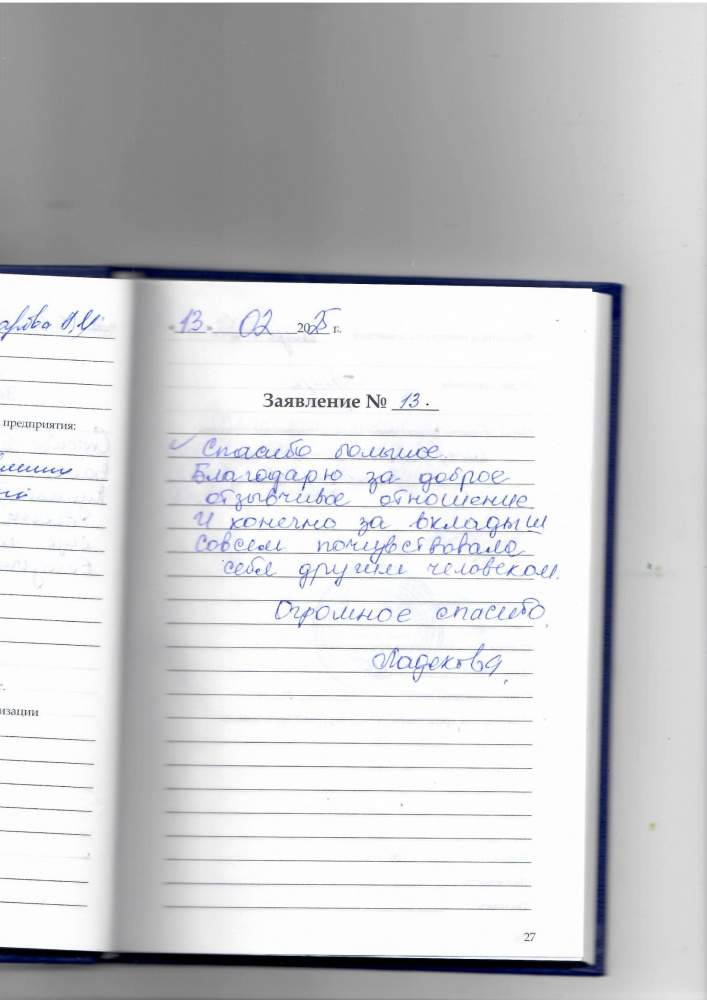 предприятия:
изации
13 02 2025 г.
Заявление № 13.
Спасибо большое.
Благодарю за доброе
отзывчивое отношение
И конечно за вкладыш
Совсем почувствовала
себя другим человеком.
Огромное спасибо
27